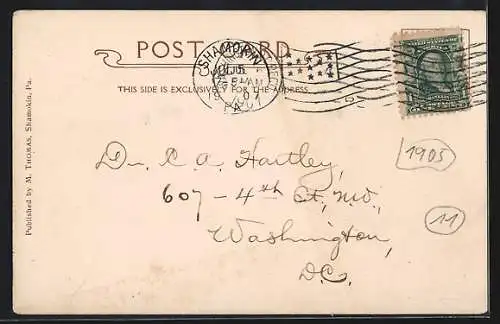 POST CARD
SHAMOKIN
THIS SIDE IS EXCLUSIVELY FOR THE ADDRESS
PA.
Dr. C. A. Hartley,
607-4th St. N.W.
Washington,
D.C.
(1905)
11
Published by M. THOMAS, Shamokin, Pa.